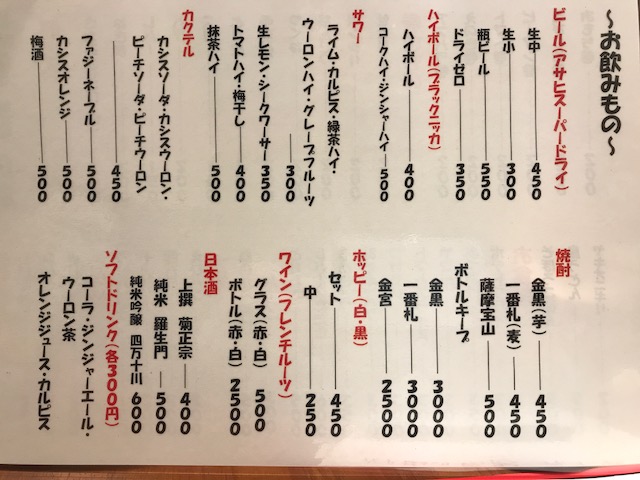 ～お飲みもの～
ビール(アサヒスーパードライ)
生中 450
生小 300
瓶ビール 550
ドライゼロ 350
ハイボール(ブラックニッカ)
ハイボール 400
コークハイ・ジンジャーハイ 500
サワー
ライム・カルピス・緑茶ハイ・
ウーロンハイ・グレープフルーツ
300
生レモン・シークワーサー 350
トマトハイ・梅干し 400
抹茶ハイ 500
カクテル
カシスソーダ・カシスウーロン・
ピーチソーダ・ピーチウーロン
450
ファジーネーブル 500
カシスオレンジ 500
梅酒 500
焼酎
金黒(芋) 450
一番札(麦) 450
薩摩宝山 500
ボトルキープ
金黒 3000
一番札 3000
金宮 2500
ホッピー(白・黒)
セット 450
中 250
ワイン(フレンチルーツ)
グラス(赤・白) 500
ボトル(赤・白) 2500
日本酒
上撰 菊正宗 400
純米 羅生門 500
純米吟醸 四万十川 600
ソフトドリンク(各300円)
コーラ・ジンジャーエール・
ウーロン茶
オレンジジュース・カルピス